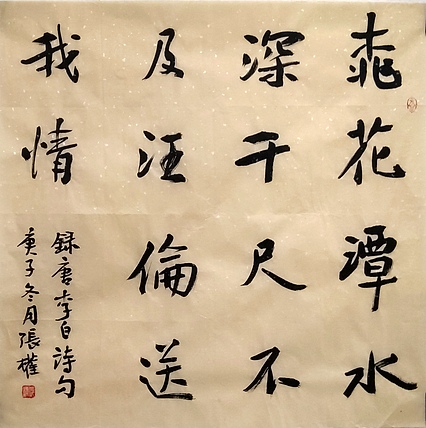 桃花潭水
深千尺不
及汪倫送
我情
録唐李白詩句
庚子冬月張權